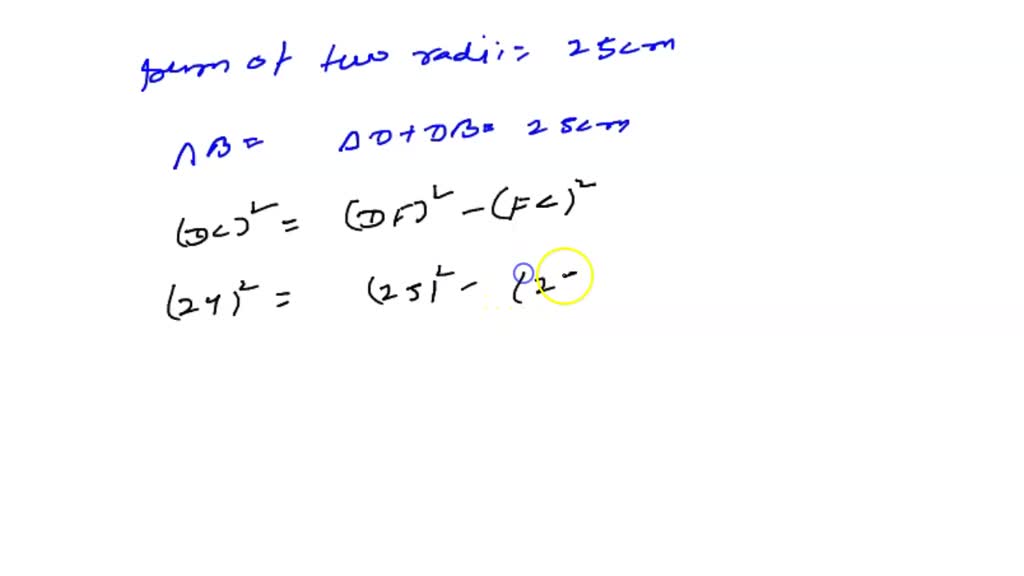 sum of two radii = 25cm
AB = AD + DB = 25cm
(DC)² = (DF)² - (FC)²
(24)² = (25)² - (2